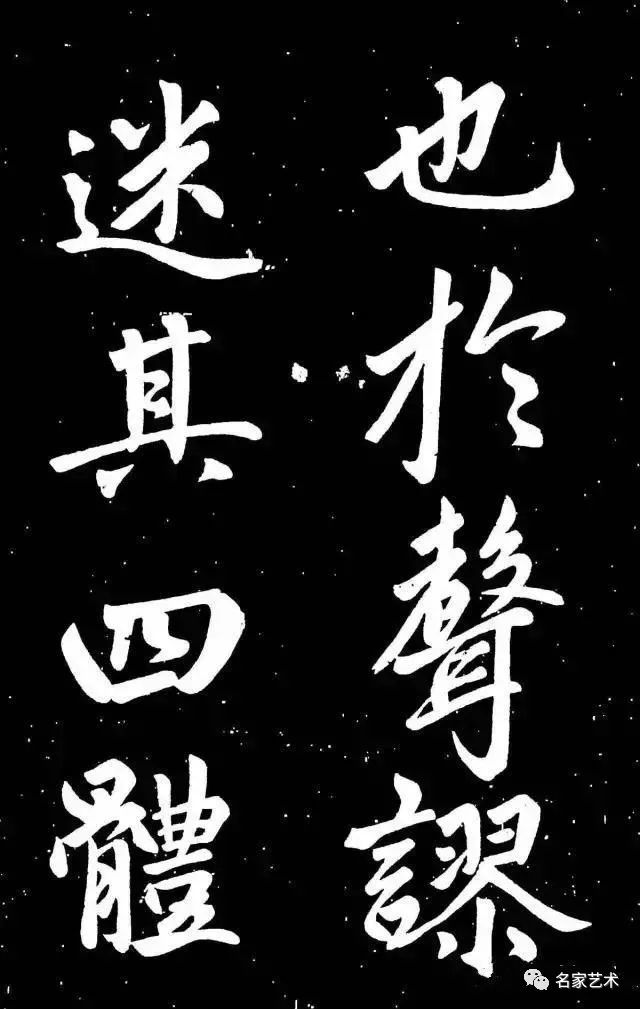 也於聲謬
迷其四體
名家艺术